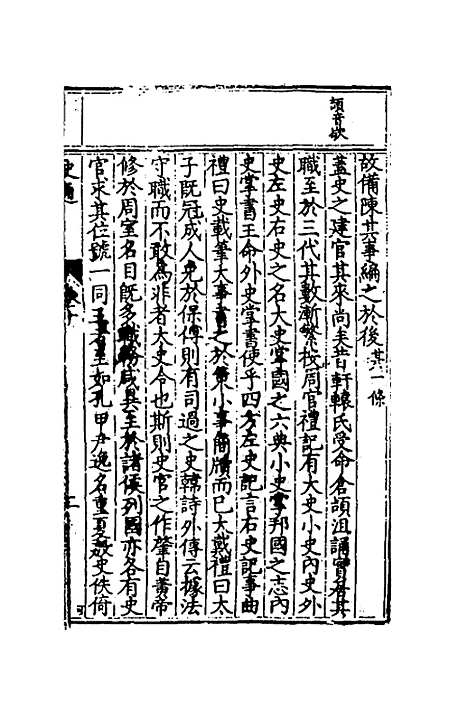 頡音欱
故備陳其事編之於後其一條
蓋史之建官其來尚矣昔軒轅氏受命倉頡沮誦實居其
職至於三代其數漸繁校周官禮記有大史小史內史外
史左史右史之名大史掌國之六典小史掌邦國之志內
史掌書王命外史掌書使乎四方左史記言右史記事曲
禮曰史載筆大事書之於策小事簡牘而已大戴禮曰太
子既冠成人免於保傅則有司過之史韓詩外傳云據法
守職而不敢為非者太史令也斯則史官之作肇自黃帝
修於周室名目既多職務咸異至於諸侯列國亦各有史
官求其位號一同王者至如孔甲尹逸名重夏殷史佚倚
史通